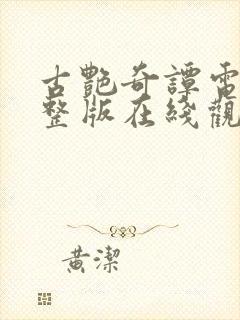 古艷奇譚電
整版在綫觀
黄潔